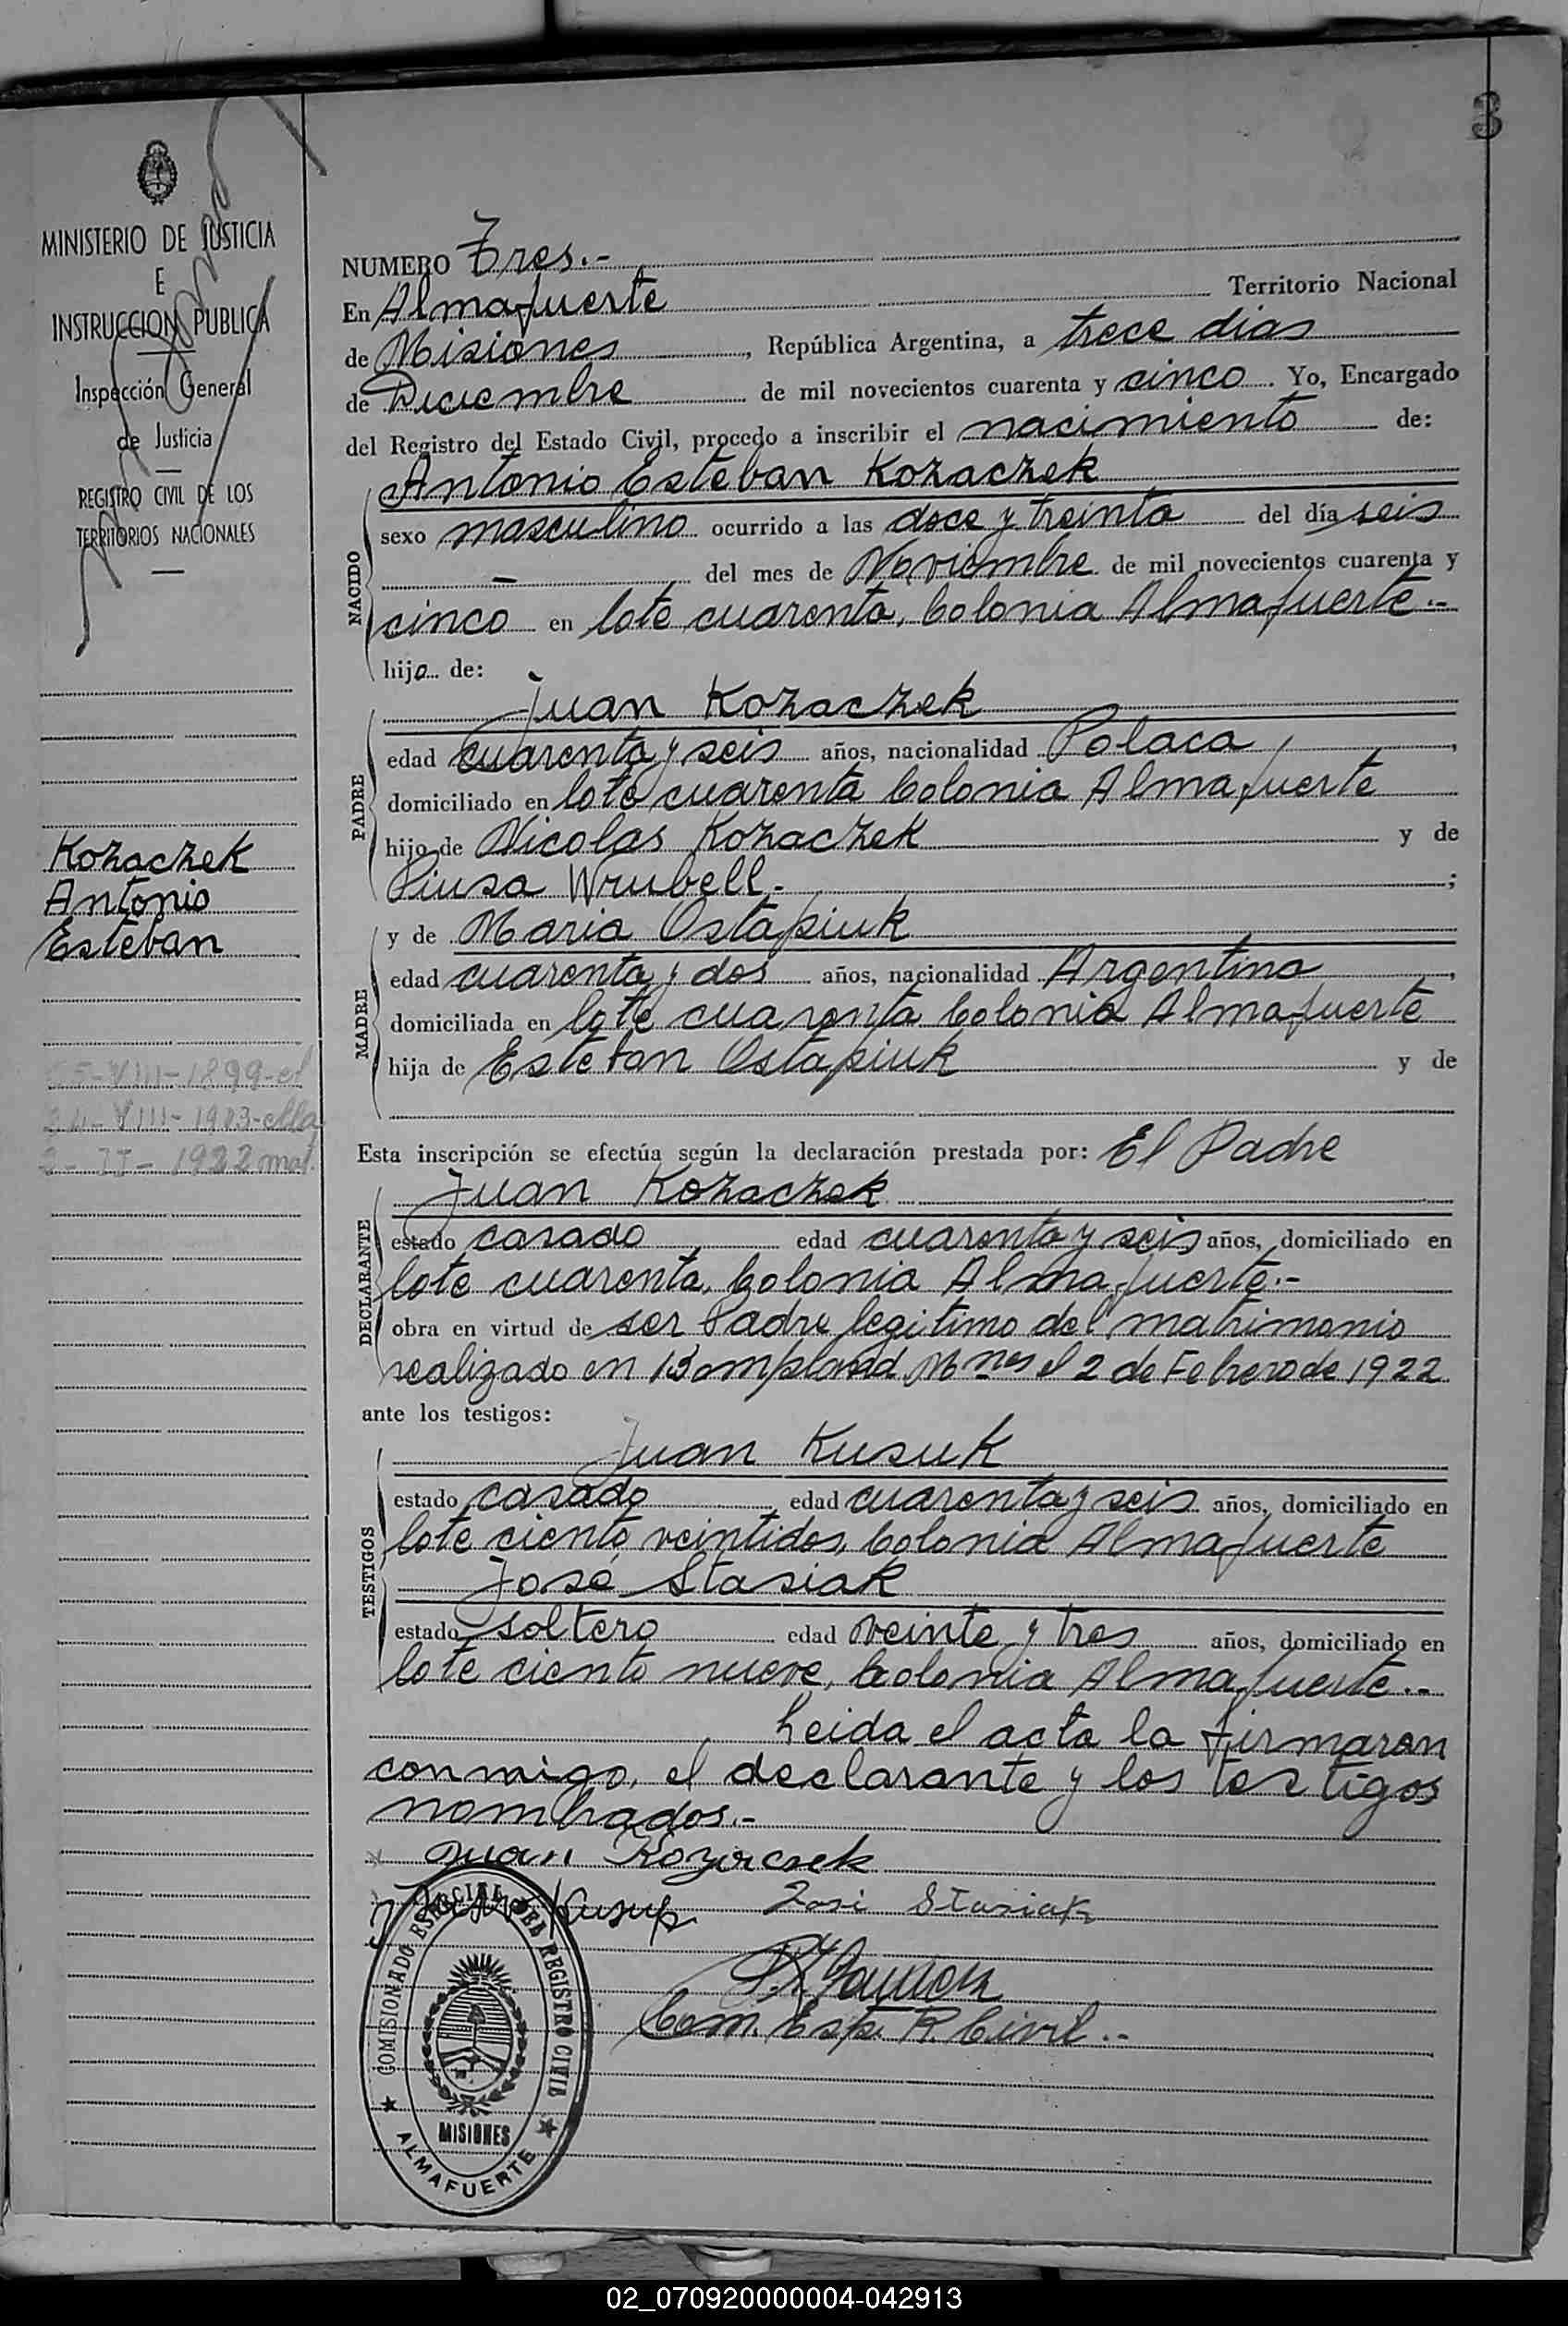 3
MINISTERIO DE JUSTICIA
E
INSTRUCCION PUBLICA
Inspección General
de Justicia
REGISTRO CIVIL DE LOS
TERRITORIOS NACIONALES
Kozaczek
Antonio
Esteban
VIII-1899-el
VIII-1903-ella
2-II-1922 mat.
NUMERO Tres.-
En Almafuerte Territorio Nacional
de Misiones, República Argentina, a trece dias
de Diciembre de mil novecientos cuarenta y cinco. Yo, Encargado
del Registro del Estado Civil, procedo a inscribir el nacimiento de:
Antonio Esteban Kozaczek
NACIDO
sexo masculino ocurrido a las doce y treinta del día seis
- del mes de Noviembre de mil novecientos cuarenta y
cinco en lote cuarenta, Colonia Almafuerte.-
hijo de:
Juan Kozaczek
PADRE
edad cuarenta y seis años, nacionalidad Polaca,
domiciliado en lote cuarenta Colonia Almafuerte
hijo de Nicolas Kozaczek y de
Piusa Wrubell.- ;
y de Maria Ostapiuk
MADRE
edad cuarenta y dos años, nacionalidad Argentina,
domiciliada en lote cuarenta Colonia Almafuerte
hija de Esteban Ostapiuk y de
Esta inscripción se efectúa según la declaración prestada por: El Padre
Juan Kozaczek
DECLARANTE
estado casado edad cuarenta y seis años, domiciliado en
lote cuarenta, Colonia Almafuerte.-
obra en virtud de ser Padre legitimo del matrimonio
realizado en Bompland Mnes el 2 de Febrero de 1922
ante los testigos:
Juan Kusuk
TESTIGOS
estado casado edad cuarenta y seis años, domiciliado en
lote ciento veintidos, Colonia Almafuerte
José Stasiak
estado soltero edad veinte y tres años, domiciliado en
lote ciento nueve, Colonia Almafuerte.-
Leida el acta la firmaron
conmigo, el declarante y los testigos
nombrados.-
Juan Kozaczek
José Stasiak
Com. Esp. R. Civil.-
COMISIONADO ESPECIAL DEL REGISTRO CIVIL
MISIONES
ALMAFUERTE
02_070920000004-042913